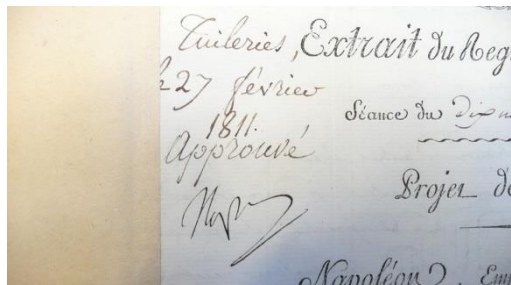 Tuileries,
le 27 février
1811.
Approuvé
Np
Extrait du Reg
Séance du dix n
Projet de
Napoléon, Em